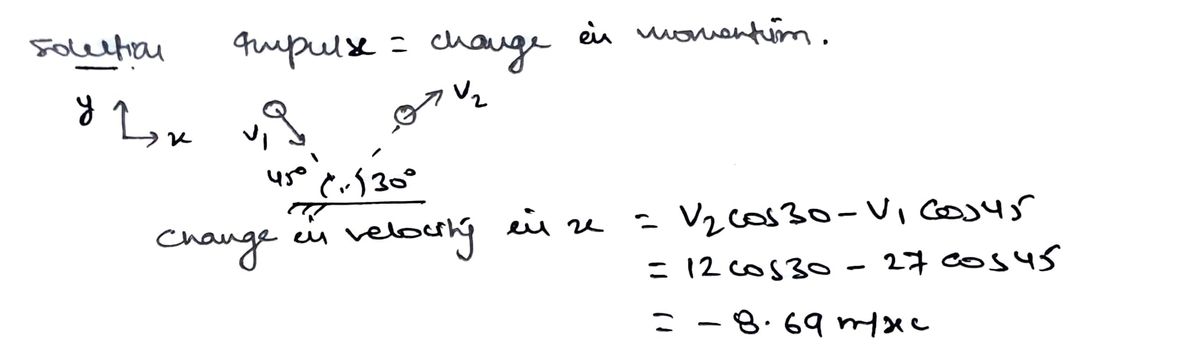 Solution Impulse = change in momentum.
y x V1 V2
45° 30°
change in velocity in x = V2 cos30 - V1 cos45
= 12 cos30 - 27 cos 45
= - 8.69 m/sec